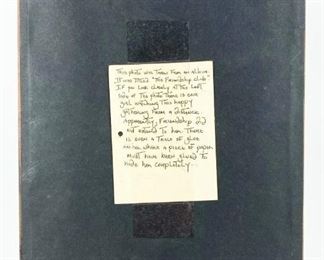 This photo was Torn From an album
It was Titled "The Friendship Club"
If you look closely at the left
side of The photo There is one
girl watching This happy
gathering From a distance.
Apparently, Friendship
not extend to her. There
is even a Trace of glue
on her where a piece of paper
must have been glued to
hide her completely...